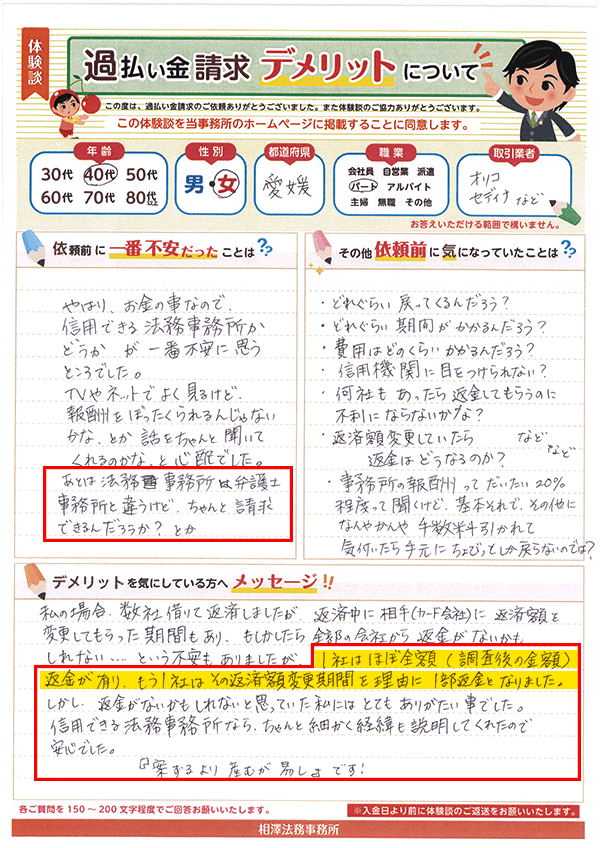 体験談
過払い金請求 デメリットについて
この度は、過払い金請求のご依頼ありがとうございました。また体験談のご協力ありがとうございます。
この体験談を当事務所のホームページに掲載することに同意します。
年齢
30代 40代 50代
60代 70代 80代以上
性別
男・女
都道府県
愛媛
職業
会社員 自営業 派遣
パート アルバイト
主婦 無職 その他
取引業者
オリコ
セディナ など
お答えいただける範囲で構いません。
依頼前に一番不安だったことは??
やはり、お金の事なので、
信用できる法務事務所か
どうか が一番不安に思う
ところでした。
TVやネットでよく見るけど、
報酬をぼったくられるんじゃない
かな、とか 話をちゃんと聞いて
くれるのかな、と心配でした。
あとは法務事務所は弁護士
事務所と違うけど、ちゃんと請求
できるんだろうか? とか
その他依頼前に気になっていたことは??
・どれぐらい戻ってくるんだろう?
・どれぐらい期間がかかるんだろう?
・費用はどのくらいかかるんだろう?
・信用機関に目をつけられない?
・何社もあったら返金してもらうのに
不利にならないかな?
・返済額変更していたら など
返金はどうなるのか? など
・事務所の報酬ってだいたい20%
程度って聞くけど、基本それで、その他に
なんやかんや手数料引かれて
気付いたら手元にちょびっとしか戻らないのでは?
デメリットを気にしている方へメッセージ!!
私の場合、数社借りて返済しましたが 返済中に相手(カード会社)に返済額を
変更してもらった期間もあり、もしかしたら 全部の会社から返金がないかも
しれない… という不安もありましたが、1社はほぼ全額(調査後の金額)
返金が有り、もう1社はその返済額変更期間を理由に1部返金となりました。
しかし、返金がないかもしれないと思っていた私にはとてもありがたい事でした。
信用できる法務事務所なら、ちゃんと細かく経緯も説明してくれたので
安心でした。
『案ずるより産むが易し』です!
各ご質問を150～200文字程度でご回答お願いいたします。
※入金日より前に体験談のご返送をお願いいたします。
相澤法務事務所